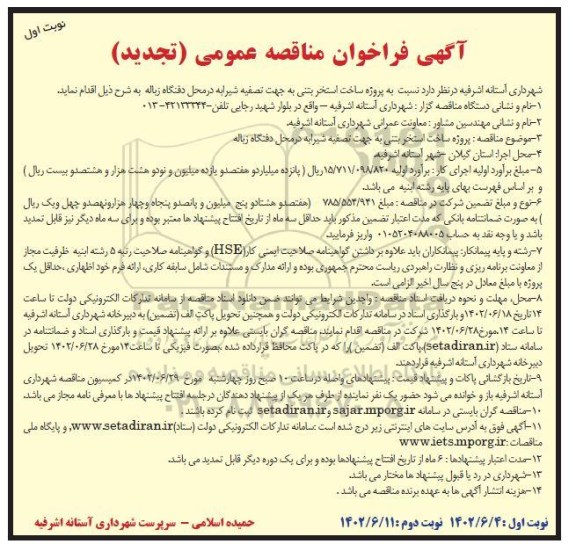 نوبت اول
آگهی فراخوان مناقصه عمومی (تجدید)
شهرداری آستانه اشرفیه درنظر دارد نسبت به پروژه ساخت استخر بتنی به جهت تصفیه شیرابه درمحل دفنگاه زباله به شرح ذیل اقدام نماید.
۱-نام و نشانی دستگاه مناقصه گزار : شهرداری آستانه اشرفیه – واقع در بلوار شهید رجایی تلفن-۴۲۱۳۳۳۴۴-۰۱۳
۲-نام و نشانی مهندسین مشاور : معاونت عمرانی شهرداری آستانه اشرفیه.
۳-موضوع مناقصه : پروژه ساخت استخر بتنی به جهت تصفیه شیرابه درمحل دفنگاه زباله
۴-محل اجرا: استان گیلان –شهر آستانه اشرفیه
۵- مبلغ برآورد اولیه اجرای کار : برآورد اولیه ۱۵/۷۱۱/۰۹۸/۸۲۰ریال ( پانزده میلیاردو هفتصدو یازده میلیون و نودو هشت هزار و هشتصدو بیست ریال )
و بر اساس فهرست بهای پایه رشته ابنیه می باشد.
۶-نوع و مبلغ تضمین شرکت در مناقصه : مبلغ ۷۸۵/۵۵۴/۹۴۱ (هفتصدو هشتادو پنج میلیون و پانصدو پنجاه وچهار هزارونهصدو چهل ویک ریال
) به صورت ضمانتنامه بانکی که مدت اعتبار تضمین مذکور باید حداقل سه ماه از تاریخ افتتاح پیشنهاد ها معتبر بوده و برای سه ماه دیگر نیز قابل تمدید
باشد و یا وجه نقد به حساب ۰۱۰۵۲۰۴۰۸۸۰۰۵ واریز فرمایید.
۷-رشته و پایه پیمانکار: پیمانکاران باید علاوه بر داشتن گواهینامه صلاحیت ایمنی کار(HSE) و گواهینامه صلاحیت رتبه ۵ رشته ابنیه ظرفیت مجاز
از معاونت برنامه ریزی و نظارت راهبردی ریاست محترم جمهوری بوده و ارائه مدارک و مستندات شامل سابقه کاری، ارائه فرم خود اظهاری ،حداقل یک
پروژه با مبلغ معادل در پنج سال اخیر الزامی است.
۸-محل، مهلت و نحوه دریافت اسناد مناقصه : واجدین شرایط می توانند ضمن دانلود اسناد مناقصه از سامانه تدارکات الکترونیکی دولت تا ساعت
۱۴تاریخ ۱۴۰۲/۰۶/۱۸ و بارگذاری اسناد در سامانه تدارکات الکترونیکی دولت و همچنین تحویل پاکت الف (تضمین) به دبیرخانه شهرداری آستانه اشرفیه
تا ساعت ۱۴مورخ۱۴۰۲/۰۶/۲۸ شرکت در مناقصه اقدام نمایند. مناقصه گران بایستی علاوه بر ارائه پیشنهاد قیمت و بارگذاری اسناد و ضمانتنامه در
سامانه ستاد (setadiran.ir)،پاکت الف (تضمین) را که در پاکت محافظ قرارداده شده ،بصورت فیزیکی تا ساعت۱۴مورخ ۱۴۰۲/۰۶/۲۸ تحویل
دبیرخانه شهرداری آستانه اشرفیه قراردهند.
۹-تاریخ بازگشائی پاکات و پیشنهاد قیمت : پیشنهادهای واصله درساعت ۱۰ صبح روز چهارشنبه مورخ ۱۴۰۲/۰۶/۲۹در کمیسیون مناقصه شهرداری
آستانه اشرفیه باز و خوانده می شود حضور یک نفر نماینده از طرف هر یک از پیشنهاد دهندگان درجلسه افتتاح پیشنهاد ها با معرفی نامه مجاز می باشد.
۱۰-مناقصه گران بایستی در سامانه sajar.mporg.ir و setadiran.ir ثبت نام کرده باشند .
۱۱-آگهی فوق به آدرس سایت های اینترنتی زیر درج شده است .سامانه تدارکات الکترونیکی دولت (ستاد)www.setadiran.ir، و پایگاه ملی
مناقصات:www.iets.mporg.ir
۱۲-مدت اعتبار پیشنهادها : ۶ ماه از تاریخ افتتاح پیشنهادها بوده و برای یک دوره دیگر قابل تمدید می باشد.
۱۳-شهرداری در رد یا قبول پیشنهاد ها مختار می باشد.
۱۴-هزینه انتشار آگهی ها به عهده برنده مناقصه می باشد .
نوبت اول :۱۴۰۲/۶/۴ نوبت دوم :۱۴۰۲/۶/۱۱
حمیده اسلامی – سرپرست شهرداری آستانه اشرفیه